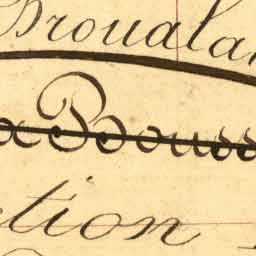 Brouala
a Bouss
tion